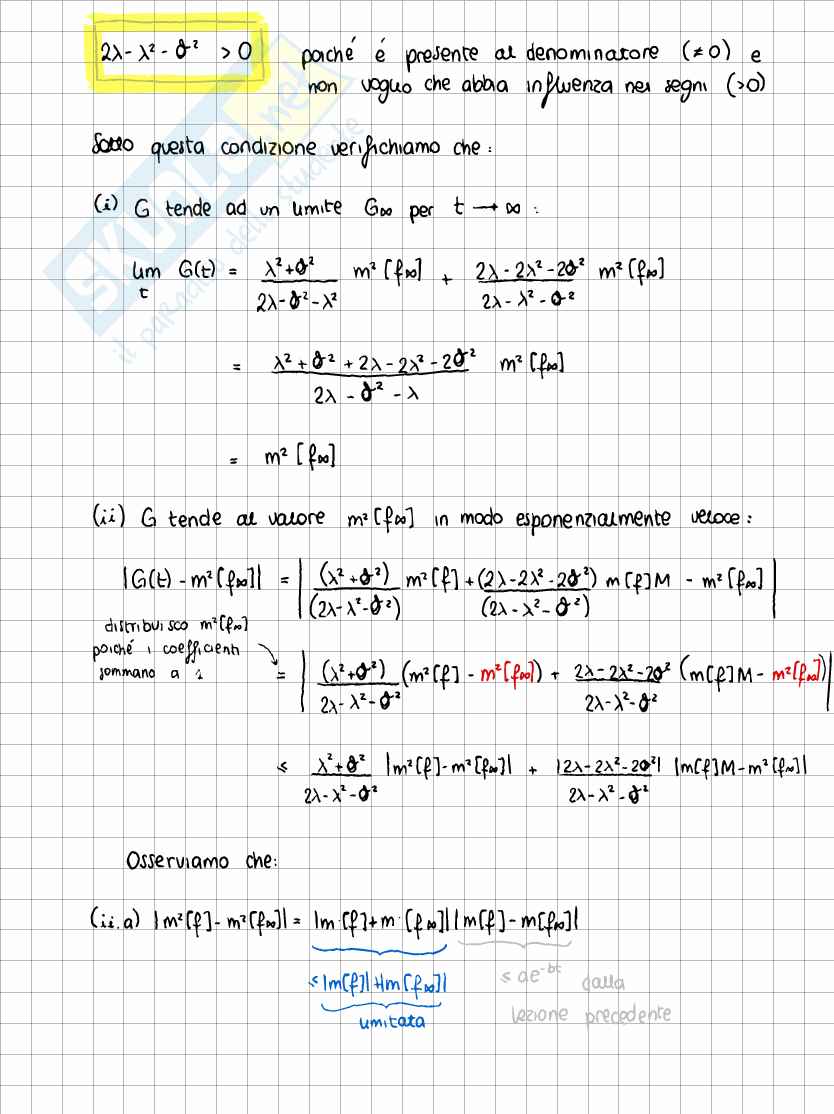 2λ - λ² - σ² > 0 poiché é presente al denominatore (≠0) e
non voglio che abbia influenza nei segni (>0)
Sotto questa condizione verifichiamo che:
(i) G tende ad un limite G∞ per t → ∞ :
lim_t G(t) = (λ²+σ²)/(2λ-σ²-λ²) m²[f∞] + (2λ-2λ²-2σ²)/(2λ-λ²-σ²) m²[f∞]
= (λ²+σ²+2λ-2λ²-2σ²)/(2λ-σ²-λ) m²[f∞]
= m²[f∞]
(ii) G tende al valore m²[f∞] in modo esponenzialmente veloce:
|G(t) - m²[f∞]| = | (λ²+σ²)/(2λ-λ²-σ²) m²[f] + (2λ-2λ²-2σ²)/(2λ-λ²-σ²) m[f]M - m²[f∞] |
distribuisco m²[f∞]
poiché i coefficienti
sommano a 1
= | (λ²+σ²)/(2λ-λ²-σ²) (m²[f] - m²[f∞]) + (2λ-2λ²-2σ²)/(2λ-λ²-σ²) (m[f]M - m²[f∞]) |
≤ (λ²+σ²)/(2λ-λ²-σ²) |m²[f]-m²[f∞]| + |2λ-2λ²-2σ²|/(2λ-λ²-σ²) |m[f]M-m²[f∞]|
Osserviamo che:
(ii.a) |m²[f]-m²[f∞]| = |m[f]+m[f∞]| |m[f]-m[f∞]|
≤ |m[f]|+|m[f∞]| ≤ ae^-bt dalla
limitata lezione precedente
SKUOLA.net
il paradiso dello studente